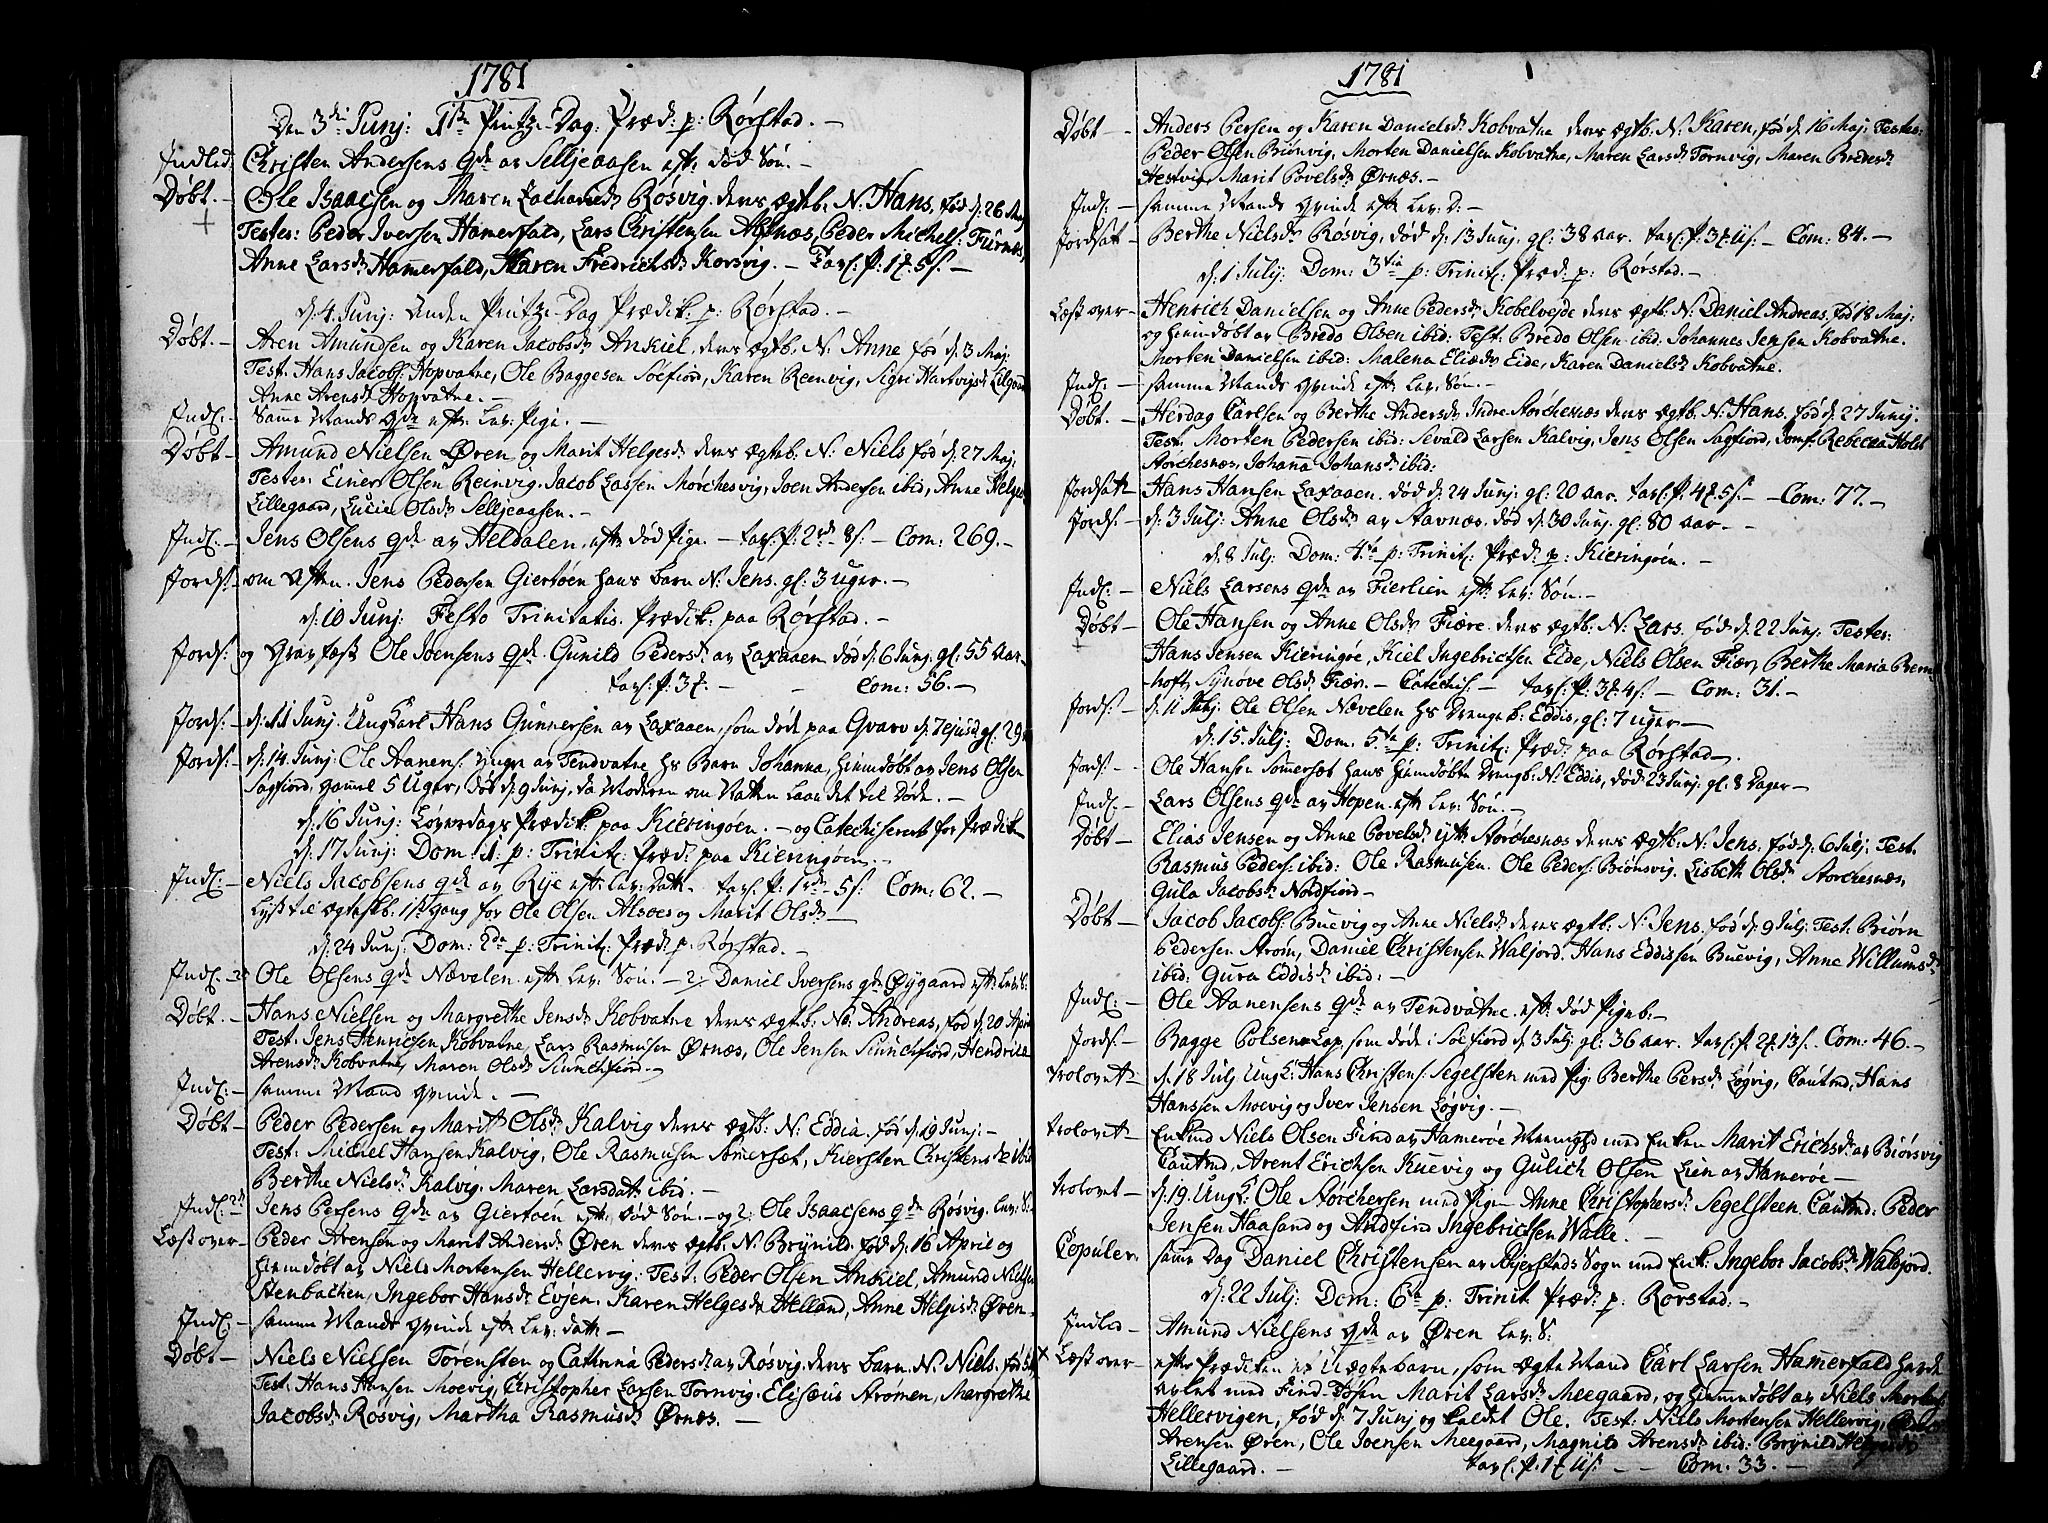 1781
Den 3die Junj: 1ste Pintze-Dag: Præd: p: Rørstad. -
Indled. Christen Andersens qde av Selljeaasen eft: død Søn. -
Døbt. - Ole Isaacsen og Maren Zachariæd: Røsvig. deres ægtb: N: Hans, fød d: 26 Maj
+ Testes: Peder Iversen Hamerfald, Lars Christensen Agnæs, Peder Michels: Furnæs,
Anne Larsd: Hamerfald, Karen Fredrichsd: Korsvig. - Tavl: P: 1 5s. -
d: 4 Junj: Anden Pintze-Dag Prædik: p: Rørstad. -
Døbt. - Aren Amundsen og Karen Jacobsd: Ankiel, deres ægtb: N: Anne fød d: 3 Maj:
Test: Hans Jacobs: Hopvatne, Ole Baggesen Søefiord, Karen Reenvig, Sigri Hartvigsd: Lilgaard
Anne Arensd: Hopvatne. -
Indl. - Samme Mands qde eft: lev: Pige. -
Døbt - Amund Nielsen Øren og Marit Helgesd: deres ægtb: N: Niels fød d: 27 Maj:
Testes: Einer Olsen Reinvig, Jacob Lassen Mørchesvig, Joen Andersen ibid, Anne Helges
Lillegaard, Lucia Olsd: Selljeaasen. -
Indl. - Jens Olsens qde av Heldalen, eft: død Pige. - tavl: P: 2 8s. - Com: 269. -
Jords: - om Aften. Jens Pedersen Giertøen hans barn N: Jens. gl: 3 uger. -
d: 10 Junj: Festo Trinitatis. Prædik: paa Rørstad. -
Jords: og Gravfæst Ole Joensens qde Gunild Pedersd: av Laxaaen død d: 6 Junj. gl: 55 aar.
tavl: P: 3 . - - Com: 56. -
Jords: - d: 11 Junj: Ungkarl Hans Gunnersen av Laxaaen, som døde paa Qvarv d: 7 ejusd gl: 29
Jords: - d: 14 Junj: Ole Hanens: yngre av Tendvatne hs Barn Johanna, hiemdøbt av Jens Olsen
Sagfiord, gamel 5 Uger, død d: 9 Junj, da Moderen om Natten laae det til Døde. -
d: 16 Junj: Løverdags Prædik: paa Kieringøen. - og Catechiserert for Prædik:
d: 17 Junj: Dom: 1: p: Trinit: Præd: paa Kieringøen. -
Indl: - Niels Jacobsens qde av Rye eft: lev: Datt. tavl: P: 1 5s: Com: 62. -
Lyst til ægtesk: 1ste gang for Ole Olsen Alsoes og Marit Olsd: -
d: 24 Junj Dom: 2da p: Trinit: Præd: p: Rørstad. -
Indl: 2de Ole Olsens qde Nævelen eft: lev: Søn. - 2/ Daniel Iversens qde Øygaard eft: lev: S:
Døbt. - Hans Nielsen og Margrethe Jensd: Kobvatne deres ægtb: N: Andreas, fød d: 20 April
Test: Jens Henricsen Kobvatne, Lars Rasmussen Ørnæs, Ole Jensen Siunchfiord, Hendrica
Arensd: Kobvatne, Maren Olsd: Siunchfiord. -
Indl: - samme Mand qvinde. -
Døbt - Peder Pedersen og Marit Olsd: Kalvig deres ægtb: N: Eddia. fød d: 19 Junj: -
Test: Michel Hansen Kalvig, Ole Rasmusen Somersæt, Kiersten Christensd: ibid
Berthe Nielsd: Kalvig. Maren Larsdatt: ibid. -
Indl: 2de Jens Persens qde av Giertøen eft: død Søn. - og 2: Ole Isaacsens qde Røsvig. lev: S:
Læst over - Peder Arensen og Marit Andersd: Øren deres ægtb: N: Brynild. fød d: 16 April og
hiemdøbt av Niels Mortensen Hellervig: Test: Peder Olsen Ankiel, Amund Nielsen
Stenbachen, Ingebor Hansd: Evjen. Karen Helgesd: Helland, Anne Helgisd: Øren -
Indl: - samme Mands qvinde eft: lev: datt -
Døbt - Niels Nielsen Torensten og Cathrina Pedersd: av Røsvig. deres barn. N: Niels. fød
Test: Hans Hansen Moevig, Christopher Larsen Tornvig, Elisæus Strømen, Margrethe
Jacobsd: Røsvig, Martha Rasmusd: Ørnæs. -
1781
Døbt - Anders Persen og Karen Danielsd: Kobvatne deres ægtb: N: Karen, fød d: 16 Maj: Testes:
Peder Olsen Biønvig, Morten Danielsen Kobvatne, Maren Larsd: Tornvig, Maren Bredesd:
Hestvig, Marit Povelsd: Ørnæs. -
Indl: - samme Mands qvinde eft: lev: D: -
Jordsat - Berthe Nielsd: Røsvig, død d: 13 Junj. gl: 38 aar. tavl: P: 3 11s. - Com: 84. -
d: 1 Julj: Dom: 3tia p: Trinit: Præd: p: Rørstad. -
Læst over - Henrich Danielsen og Anne Pedersd: Kobelvejde deres ægtb: N: Daniel Andreas, fød 18 Maj:
og hiemdøbt av Bredo Olsen ibid: Test: Bredo Olsen ibid: Johannes Jensen Kobvatne.
Morten Danielsen ibid: Malena Eliæd: Eide, Karen Danielsd: Kobvatne.
Indl: - samme Mands qvinde eft: lev: Søn. -
Døbt. - Herdag Carlsen og Berthe Andersd: Indre Størchesnæs deres ægtb: N: Hans. fød d: 27 Junj:
Test: Morten Pedersen ibid: Sevald Larsen Kalvig, Jens Olsen Sagfiord, Jomf: Rebecca Holst
Størchesnæs, Johanna Johansd: ibid:
Jordsat - Hans Hansen Laxaaen. død d: 24 Junj: gl: 20 aar. tavl: P: 4 5s. - Com: 77. -
Jords: - d: 3 Julj: Anne Olsd: av Stavnæs. død d: 30 Junj. gl: 80 aar - -
d: 8 Julj: Dom: 4ta p: Trinit: Præd: p: Kieringøen. -
Indl: - Niels Larsens qde av Fierlien eft: lev: Søn. -
Døbt - Ole Hansen og Anne Olsd: Fiære. deres ægtb: N: Lars. fød d: 22 Junj: Testes:
+ Hans Jensen Kieringøe, Kiel Ingebrictsen Eide, Niels Olsen Fiær, Berthe Maria Bern-
hoft, Synøve Olsd: Fiær. - Catechis: - tavl: P: 3 4s: - Com: 31. -
Jords: - d: 11 Julj: Ole Olsen Nævelen hs Drengeb: Eddis, gl: 7 uger -
d: 15 Julj: Dom. 5ta p: Trinit: Præd: paa Rørstad. -
Jords: - - Ole Hansen Sommersæt hans hiemdøbte Drengb: N: Eddis, død 23 Junj: gl: 8 Dager -
Indl: - Lars Olsens qde av Hopen. eft: lev: Søn. -
Døbt - Elias Jensen og Anne Povelsd: ytt: Størchesnæs deres ægtb: N: Jens. fød d: 6 Julj. Test.
Rasmus Peders: ibid: Ole Rasmusen. Ole Peders: Biønsvig. Lisbeth Olsd: Størchesnæs,
Gula Jacobsd: Nordfiord -
Døbt - Jacob Jacobs: Buevig og Anne Nielsd: deres ægtb: N: Jens. fød d: 9 Julj: Test: Biørn
Pedersen Strøm, Daniel Christensen Walsjord, Hans Eddissen Buevig, Anne Willumsd:
ibid: Gura Eddisd: ibid: -
Indl: - Ole Hanensens qde av Tendvatne. eft: død Pigeb: -
Jords. - Bagge Polsen Lap, som døde i Søefiord d: 3 Julj: gl: 36 aar. tavl: P: 2 13s. Com: 46. -
Trolovet - d: 18 Julj Ungk: Hans Christens: Segelsten med Pig: Berthe Persd: Løgvig, Cautnd: Hans
Hanssen Moevig og Iver Jensen Løgvig. -
trolovet - Enkmd Niels Olsen Find av Hamerøe med Enken Marit Erichsd: av Biørsvig
Cautnd: Arent Erichsen Kuevig og Gulich Olsen Lien av Hamerøe -
trolovet - d: 19. Ungk: Ole Størchersen med Pigen Anne Christophersd: Segelsteen. Cautnd: Peder
Jensen Haasand og Andfind Ingebrictsen Walle. -
Copuler: samme Dag Daniel Christensen av Skjerstads Sogn med Enk: Ingebor Jacobsd: Walsjord.
d: 22 Julj: Dom: 6ta p: Trinit. Præd: p: Rørstad: -
Indled - Amund Nielsens qde av Øren lev: S:
x Læst over - efter Prædiken et Uægte barn, som ægte Mand Carl Larsen Hamerfald havde
avlet med Find Tøsen Marit Larsd: Meegaard, og hiemmedøbt av Niels Mortens:
Hellervigen, fød d: 7 Junj og kaldet Ole. Test: Niels Mortensen Hellervig, Peder
Arensen Øren, Ole Joensen Meegaard, Magnild Arensd: ibid: Brynild Helgesd:
Lillegaard. - tavl: P: 1 11s: - - Com: 33. -